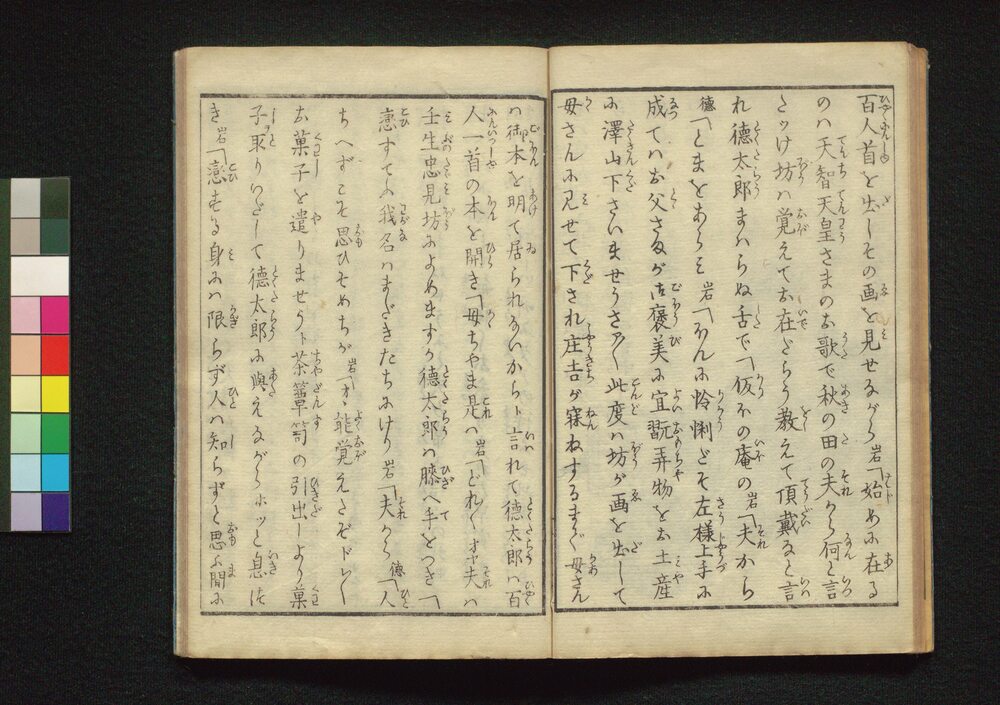 百人首を出しその画を見せながら岩「始めに在る
のハ天智天皇さまのお歌で秋の田の夫から何と言
たッけ坊ハ覚えてお在だらう教えて頂戴なと言
れ徳太郎まハらぬ舌で「仮ほの庵の岩「夫から
徳「とまをあらみ岩「ほんに怜悧だそ左様上手に
成てハお父さまが御褒美に宜翫弄物をお土産
に澤山下さいませうさア〳〵此度ハ坊が画を出して
母さんに見せて下され庄吉が寐ねするまで母さん
ハ御本を明て居られないからト言れて徳太郎ハ百
人一首の本を開き「母ちやま是ハ岩「どれ〳〵オヤ夫ハ
壬生忠見坊によめますか徳太郎ハ膝へ手をつき「
恋すてふ我名ハまだきたちにけり岩「夫から徳「人
ちへずこそ思ひそめちが岩「オヽ能覚えたぞドレ〳〵
お菓子を遣りませうト茶箪笥の引出しより菓
子取りいだして徳太郎に與えながらホッと息はつ
き岩「恋する身にハ限らず人ハ知らずと思ふ間に